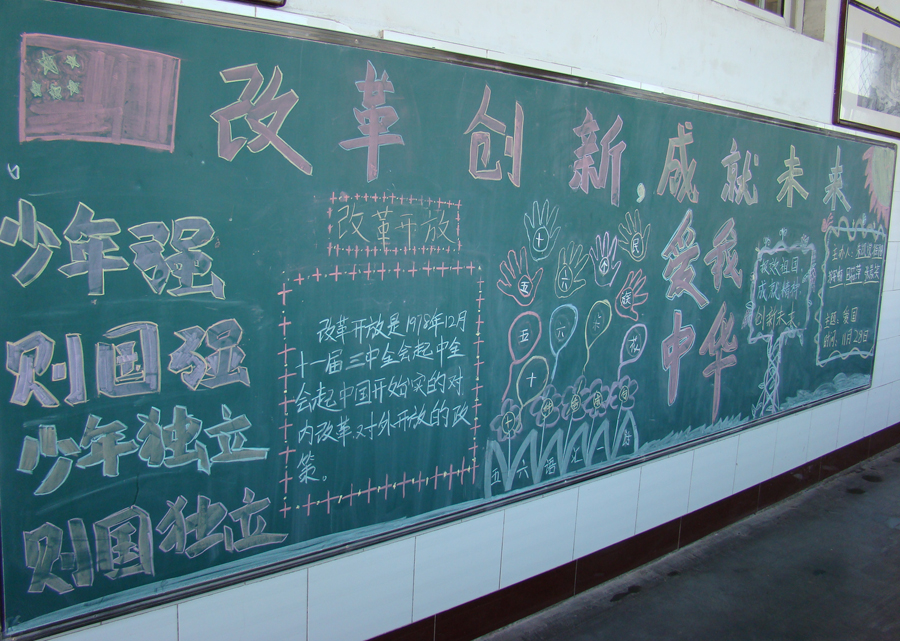 改革创新,成就未来
少年强
则国强
少年独立
则国独立
改革开放
改革开放是1978年12月
十一届三中全会起中全
会起中国开始实的对
内改革,对外开放的政
策。
十
民
五
六
个
族
五
六
朵
花
十
五
六
语
言
一
句
爱我
中华
祖国
成就
创新未来
主办人:
主题:爱国
时间:11月28日